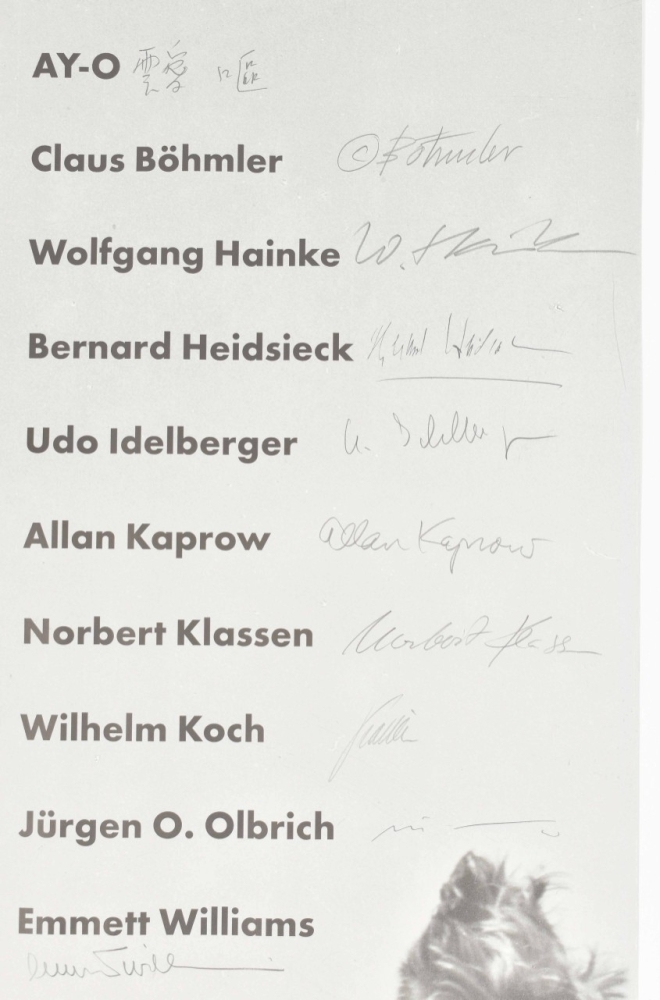 AY-O
Claus Böhmler ©Böhmler
Wolfgang Hainke W. Hainke
Bernard Heidsieck
Udo Idelberger
Allan Kaprow Allan Kaprow
Norbert Klassen Norbert Klassen
Wilhelm Koch
Jürgen O. Olbrich
Emmett Williams